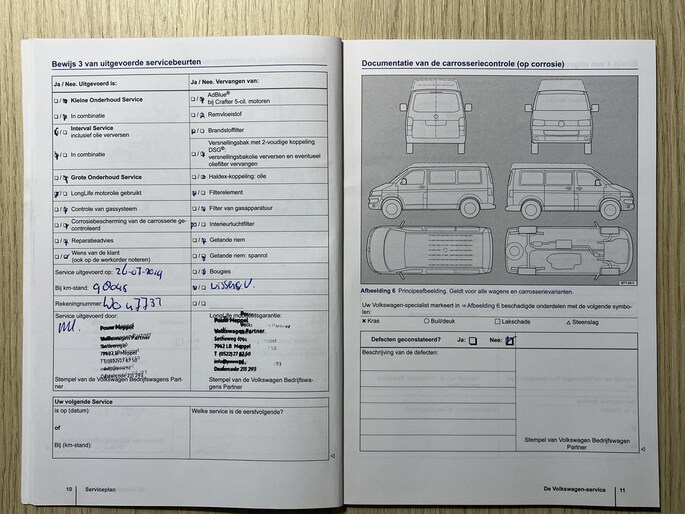 Bewijs 3 van uitgevoerde servicebeurten
Ja / Nee. Uitgevoerd is:
Ja / Nee. Vervangen van:
Kleine Onderhoud Service
AdBlue®
bij Crafter 5-cil. motoren
In combinatie
Remvloeistof
Interval Service
inclusief olie verversen
Brandstoffilter
In combinatie
Versnellingsbak met 2-voudige koppeling
DSG®:
versnellingsbakolie verversen en eventueel
oliefilter vervangen
Grote Onderhoud Service
Haldex-koppeling: olie
LongLife motorolie gebruikt
Filterelement
Controle van gassysteem
Filter van gasapparatuur
Corrosiebeschermping van de carrosserie ge-
controleerd
Interieurluchtfilter
Reparatieadvies
Getande riem
Wens van de klant
(ook op de werkorder noteren)
Getande riem: spanrol
Service uitgevoerd op: 26-07-2019
Bougies
Bij km-stand: 90045
Rekeningnummer:
Service uitgevoerd door:
LongLife mobiliteitsgarantie:
Pouw Meppel
Volkswagen Partner
Setheweg
7942 LB Meppel
Pouw Meppel
Volkswagen Partner
Setheweg
7942 LB Meppel
Dealercode 211 293
Stempel van de Volkswagen Bedrijfswagen Part-
ner
Stempel van de Volkswagen Bedrijfswa-
gens Partner
Uw volgende Service
is op (datum):
Welke service is de eerstvolgende?
of
Bij (km-stand):
10
Serviceplan
Documentatie van de carrosseriecontrole (op corrosie)
Afbeelding 6 Principeafbeelding. Geldt voor alle wagens en carrosserievarianten.
Uw Volkswagen-specialist markeert in ⇒ Afbeelding 6 beschadigde onderdelen met de volgende symbo-
len:
× Kras
○ Buil/deuk
□ Lakschade
△ Steenslag
Defecten geconstateerd?
Ja:
Nee:
Beschrijving van de defecten:
Stempel van Volkswagen Bedrijfswagen
Partner
De Volkswagen-service
11